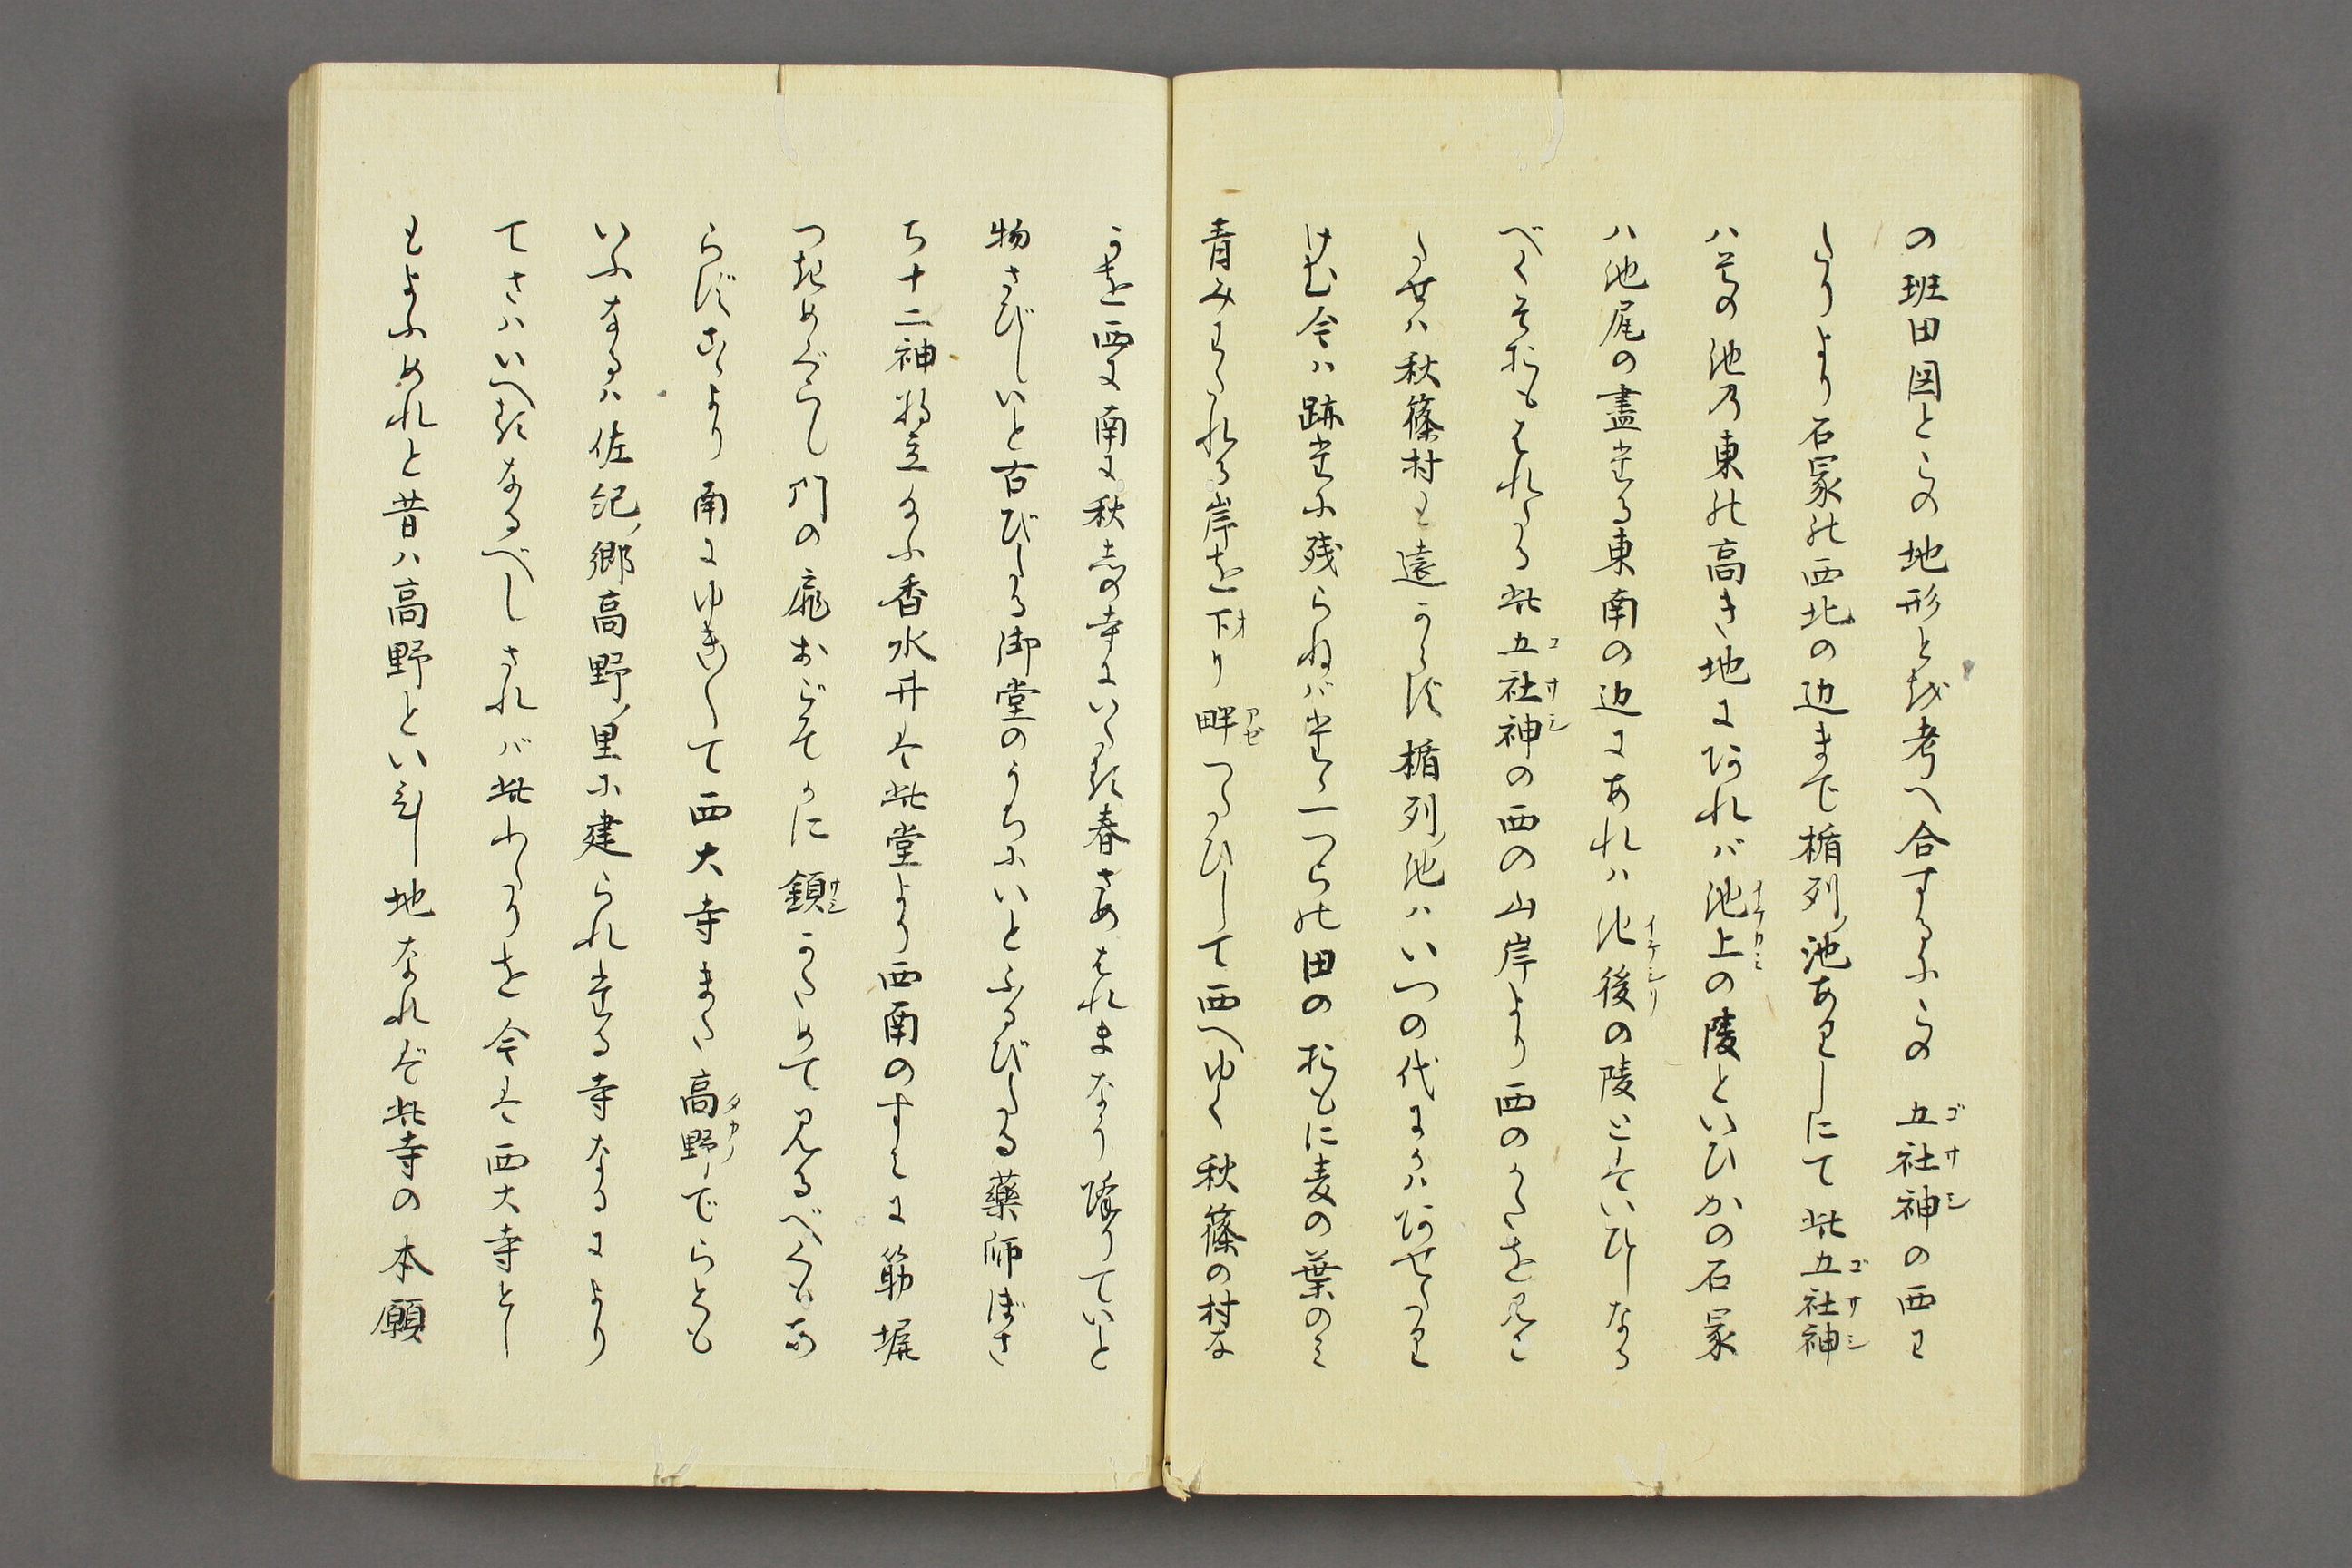 の班田図とこの地形とを考へ合するにこの五社神の西に
たりより石冢の西北の辺まで楯列ノ池ありしにて此五社神
ハその池乃東の高き地にあれバ池上の陵といひかの石冢
ハ池尾の盡たる東南の辺にあれハ池後の陵とそいひしなる
べくそおもはれたる此五社神の西の山岸より西のかたを見こ
たせハ秋篠村も遠からず楯列ノ池ハいつの代にかハあせたり
けむ今ハ跡だに残らねバたゝ一つらの田のおもに麦の葉のミ
青みわたれる岸を下り畔つたひして西へゆく秋篠の村な
かを西に南に秋志の寺にいたる春さめはれまなう降りていと
物さびしいと古びたる御堂のうちにいとふるびたる藥師ぼさ
ち十二神将立給ふ香水井は此堂より西南のすミに筋塀
つきめぐらし門の扉おごそかに鎖かためて見るべくもあ
らずこゝより南にゆき〳〵て西大寺また高野ノでらとも
いふなるハ佐紀ノ郷高野ノ里に建られたる寺なるにより
てさハいへるなるべしされバ此わたりを今は西大寺とし
もよふめれと昔ハ高野といひし地なれど此寺の本願